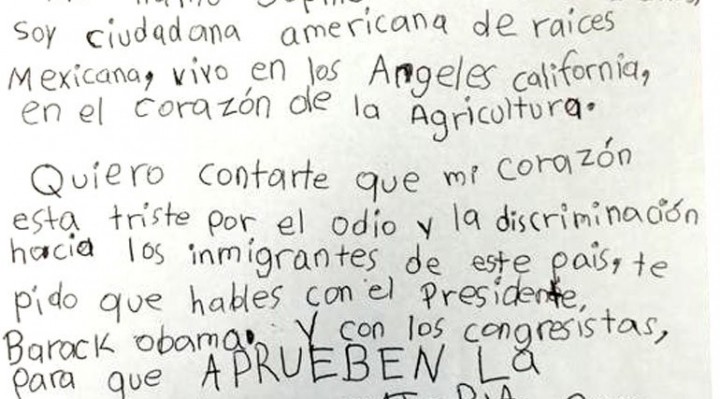 soy ciudadana americana de raices
Mexicana, vivo en los Angeles california,
en el corazón de la Agricultura.
Quiero contarte que mi corazón
esta triste por el odio y la discriminación
hacia los inmigrantes de este pais, te
pido que hables con el Presidente,
Barack obama. Y con los congresistas,
para que APRUEBEN La